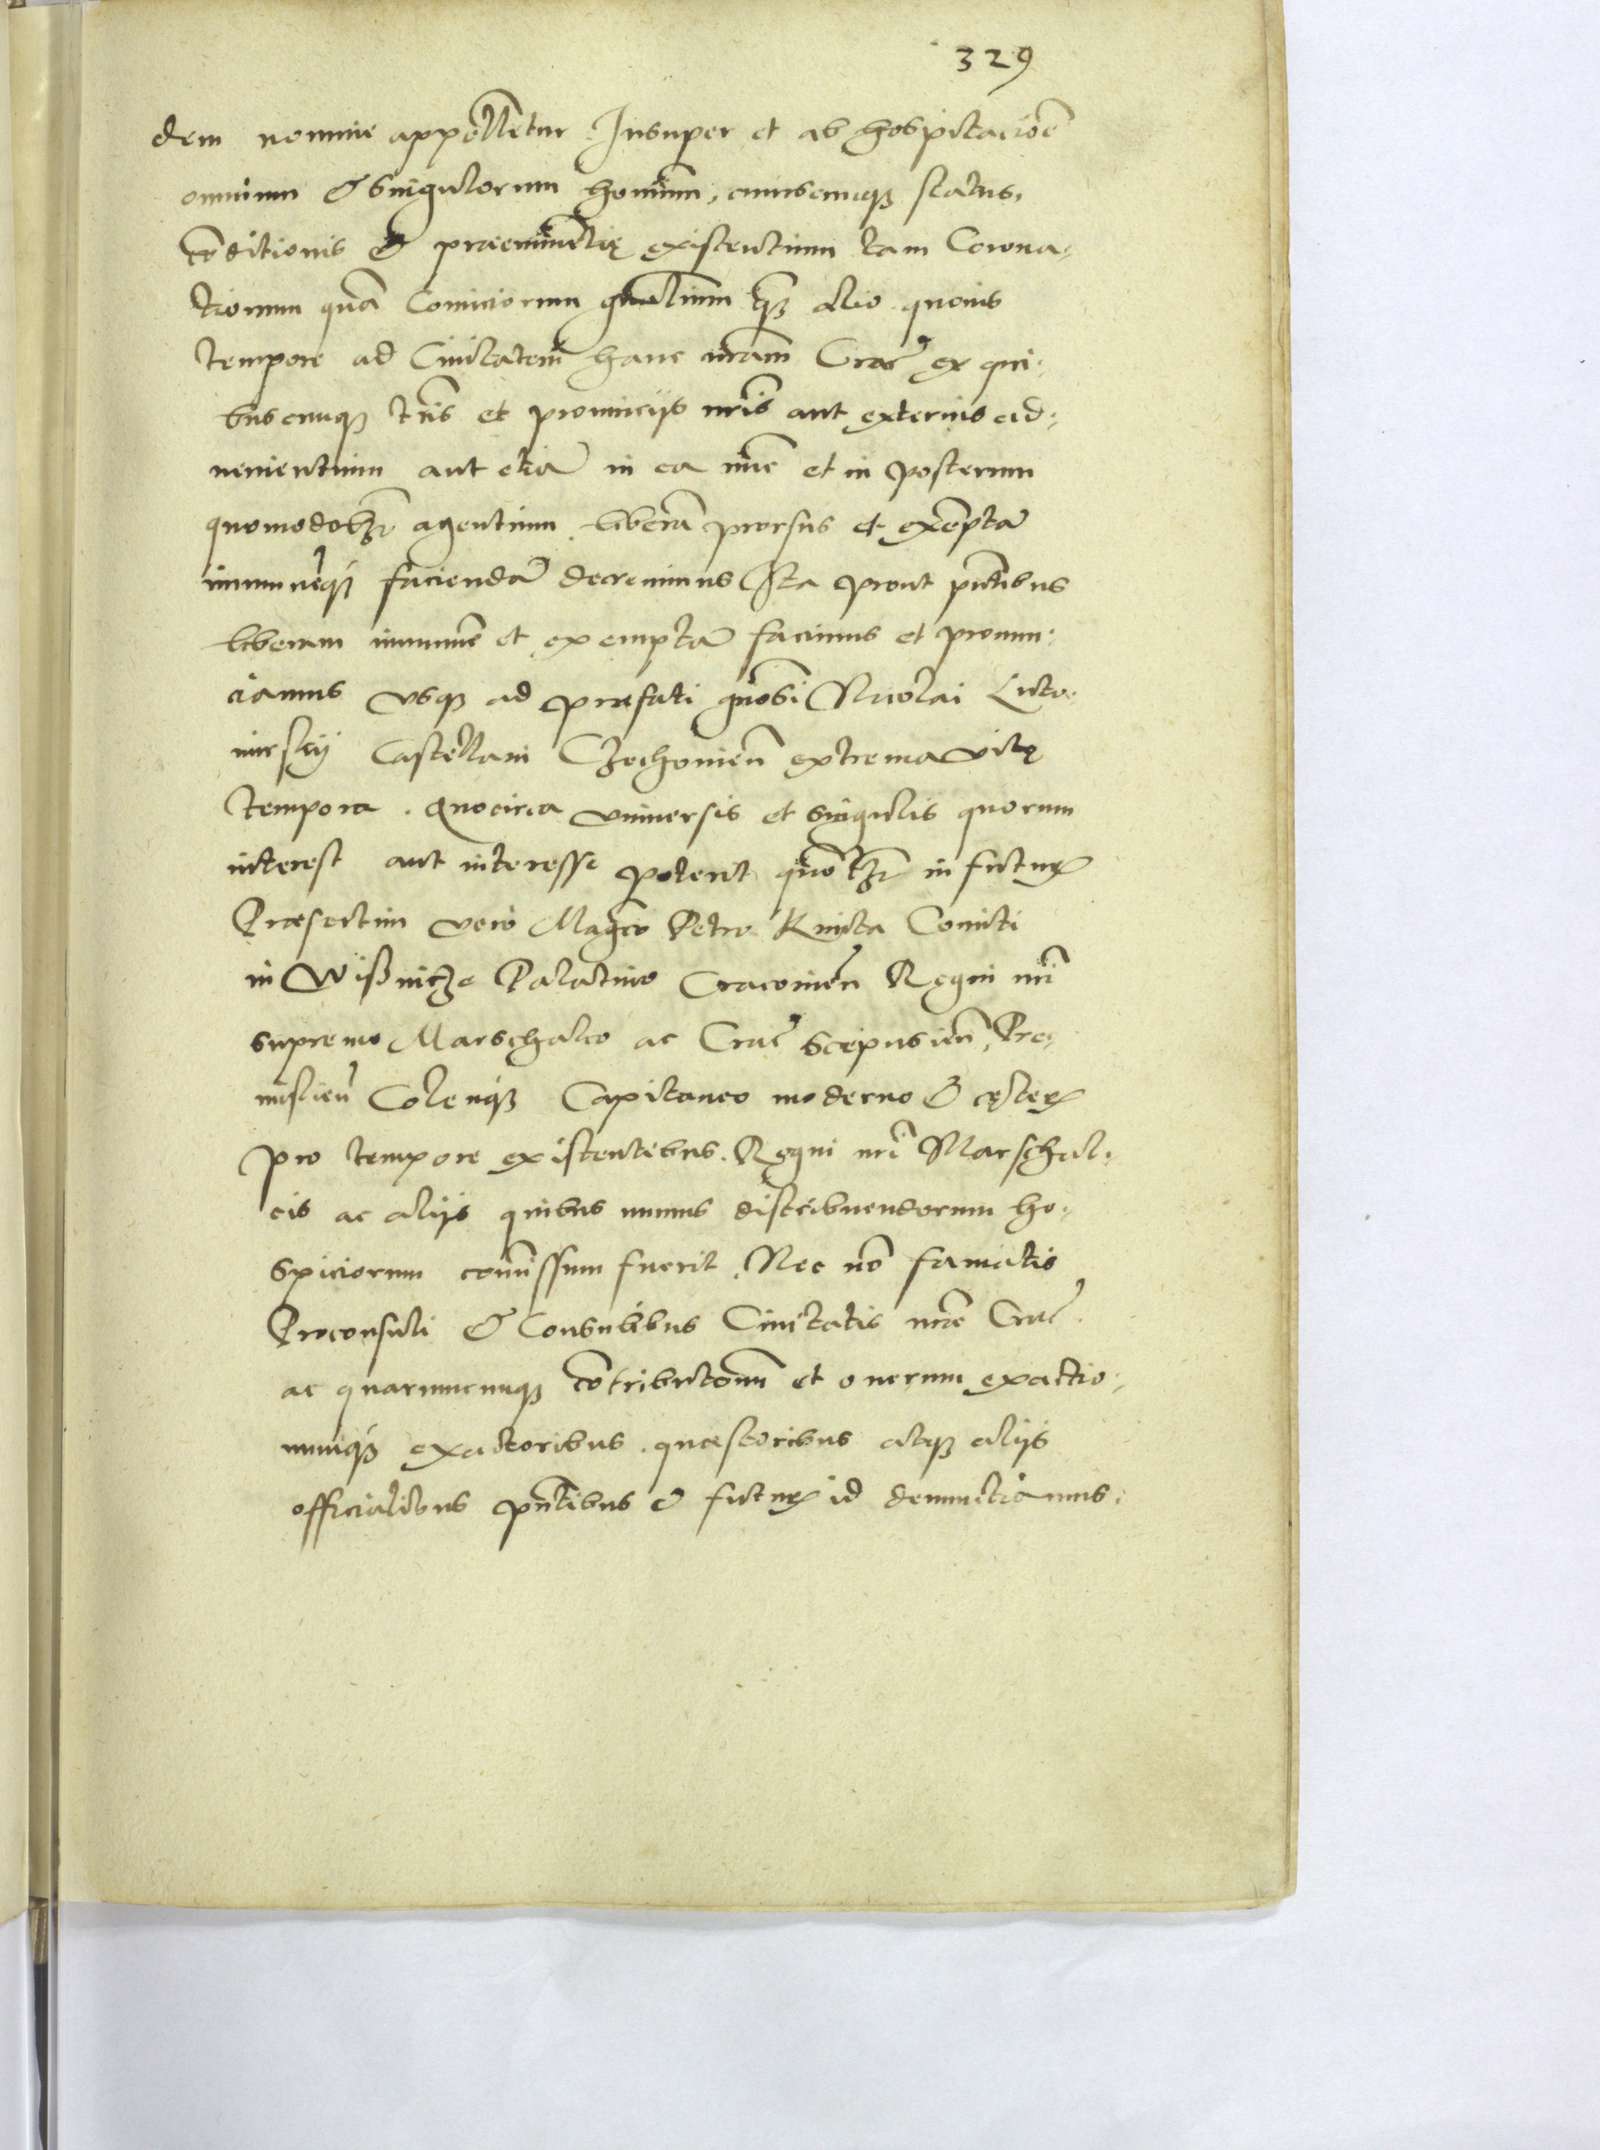 329
dem nomine appelletur. Insuper et ab hospitacioē
omnium & singulorum hominū, cuiuscunq̨ status,
cōditionis & praeeminētię existentium tam Corona-
tionum quā Comiciorum gñalium q̃ȝ alio quouis
tempore ad Ciuitatem hanc nrām Crac̄ ex qui-
buscunq̨ tr̄is et prouincijs nr̄is aut externis ad-
uenientium aut etiā in ea nūc et in posterum
quomodolȝ agentium liberā prorsus et exēptā
immunēq̨ faciendā decreuimus Ita prout pn̄tibus
liberam immunē et exemptā facimus et pronun-
ciamus vsq̨ ad praefati gn̄osi Nicolai Luto-
mirskij Castellani Czechouien̄ extrema vitę
tempora. Quocirca vniuersis et singulis quorum
interest aut interesse poterit quōlȝ in futurꝝ
Praesertim vero Maḡco Petro Kmita Comiti
in Wißnicze Palatino Cracouien̄ Regni nr̄i
supremo Marschalco ac Crac̄ Scepusien̄, Pre-
mislien̄ Colenq̨ Capitaneo moderno & cęterꝝ
pro tempore existentibus. Regni nr̄i Marschal-
cis ac alijs quibus munus distribuendorum ho-
spiciorum com̄issum fuerit. Nec nō famatis
Proconsuli & Consulibus Ciuitatis nrāe Crac̄
ac quarumcunq̨ cōtributionū et onerum exactio-
numq̨ exactoribus quaestoribus atq̨ alijs
officialibus pn̄tibus & futurꝝ id denunctiamus.